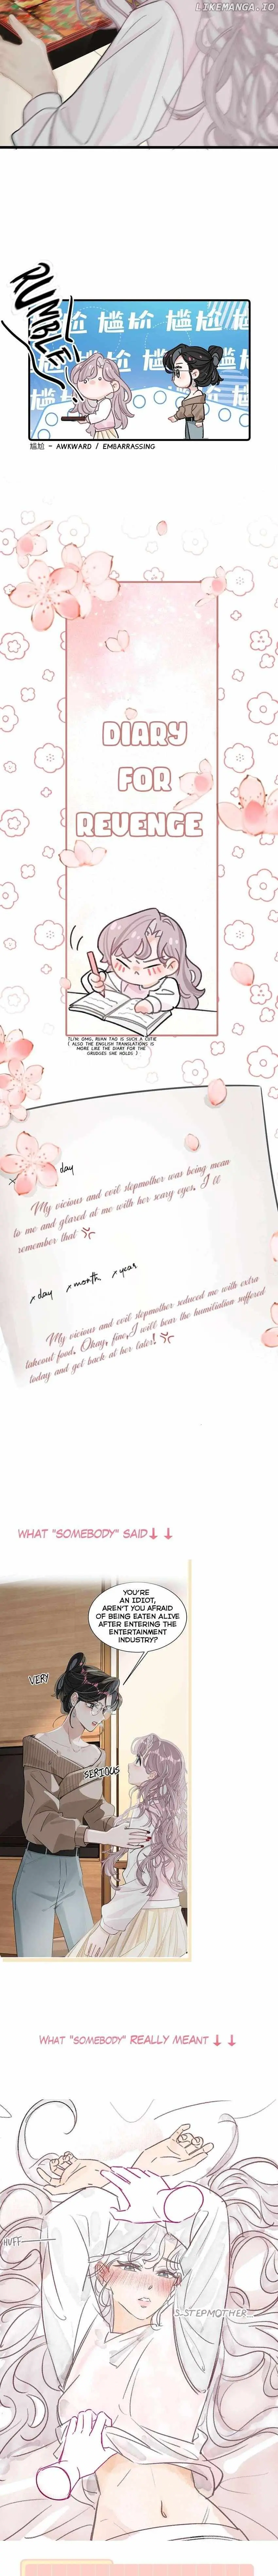 LIKEMANGA.IO
RUMBLE
尴尬 尴尬 尴尬
尴尬 - AWKWARD / EMBARRASSING
DIARY
FOR
REVENGE
TL/N: OMG, RUAN TAO IS SUCH A CUTIE
( ALSO THE ENGLISH TRANSLATIONS IS
MORE LIKE THE DIARY FOR THE
GRUDGES SHE HOLDS )
day
My vicious and evil stepmother was being mean
to me and glared at me with her scary eyes. I ll
remember that
x day x month x year
My vicious and evil stepmother seduced me with extra
takeout food. Okay, fine,I will bear the humiliation suffered
today and get back at her later!
WHAT "SOMEBODY" SAID↓ ↓
YOU'RE
AN IDIOT,
AREN'T YOU AFRAID
OF BEING EATEN ALIVE
AFTER ENTERING THE
ENTERTAINMENT
INDUSTRY?
VERY
SERIOUS
WHAT "SOMEBODY" REALLY MEANT ↓ ↓
HUFF
S-STEPMOTHER...